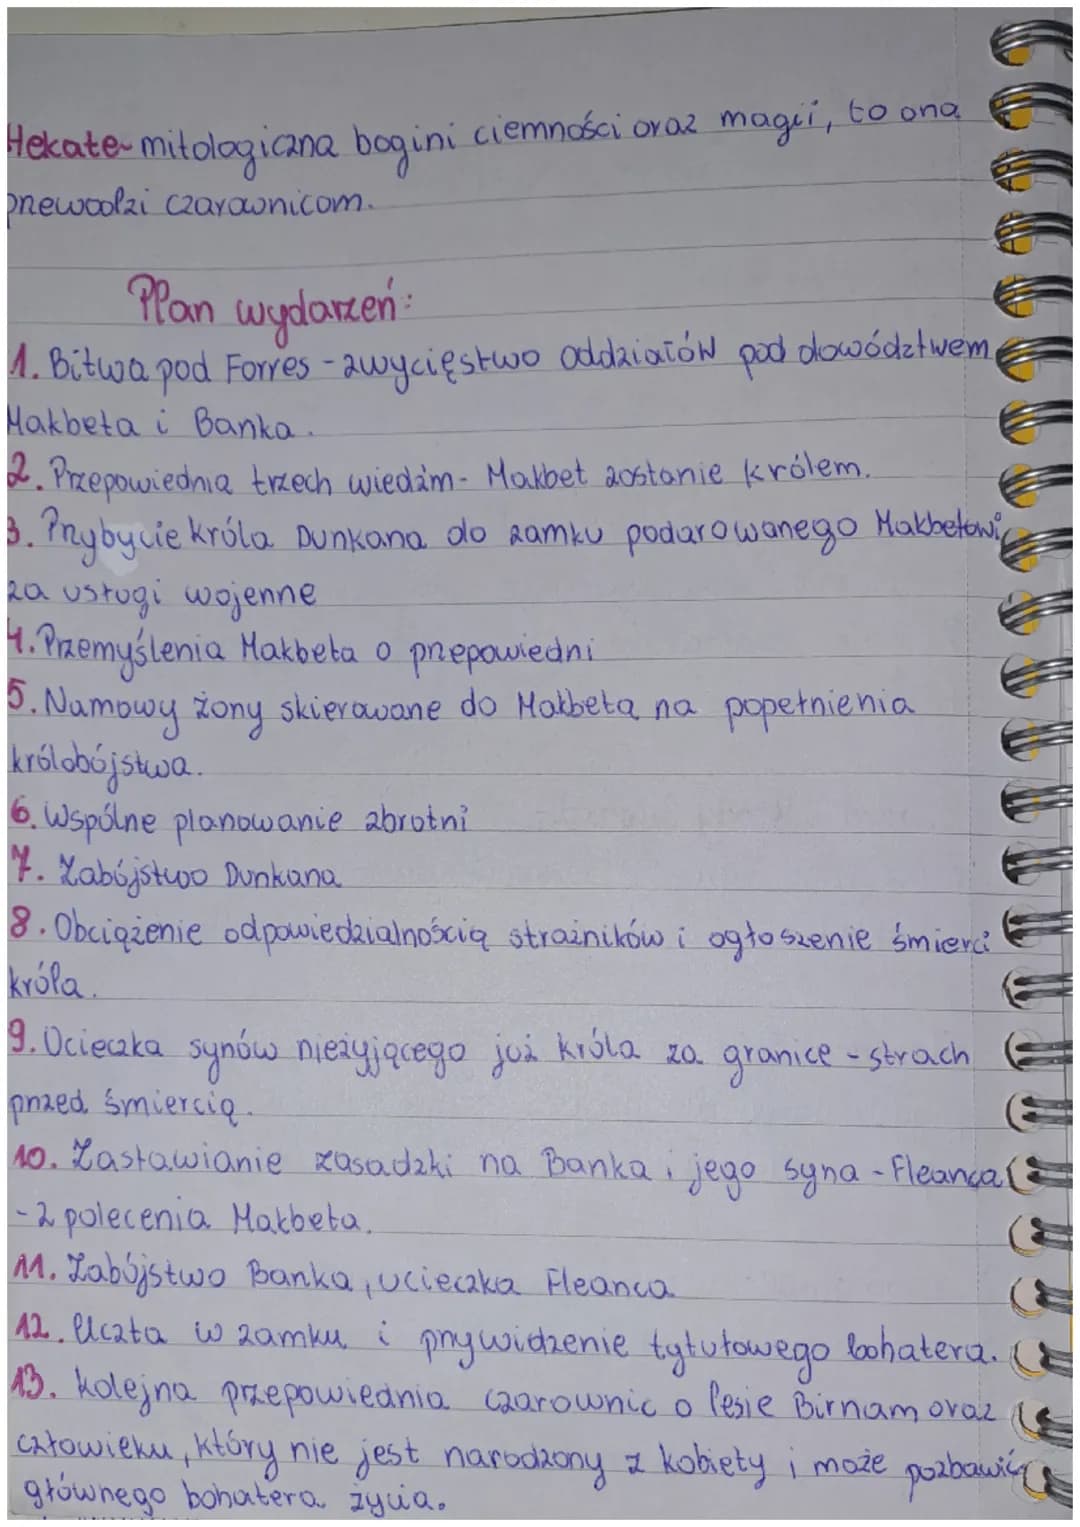 Hekate- mitologiczna bogini ciemności oraz magii, to ona
przewodzi czarownicom.
Plan wydarzeń:
1. Bitwa pod Forres - zwycięstwo oddziałów pod dowództwem
Makbeta i Banka.
2. Przepowiednia trzech wiedźm- Makbet zostanie królem.
3. Przybycie króla Dunkana do zamku podarowanego Makbetowi
za usługi wojenne
4. Przemyślenia Makbeta o przepowiedni
5. Namowy żony skierowane do Makbeta na popełnienia
królobójstwa.
6. Wspólne planowanie zbrotni
7. Zabójstwo Dunkana
8. Obciążenie odpowiedzialnością strażników i ogłoszenie śmierci
króla.
9. Ucieczka synów nieżyjącego już króla za granice - strach
przed śmiercią.
10. Zastawianie zasadzki na Banka i jego syna - Fleanca
- z polecenia Makbeta.
11. Zabójstwo Banka, ucieczka Fleanca
12. Uczta w zamku i przywidzenie tytułowego bohatera.
13. Kolejna przepowiednia czarownic o lesie Birnam oraz
człowieku, który nie jest narodzony z kobiety i może pozbawić
głównego bohatera życia.